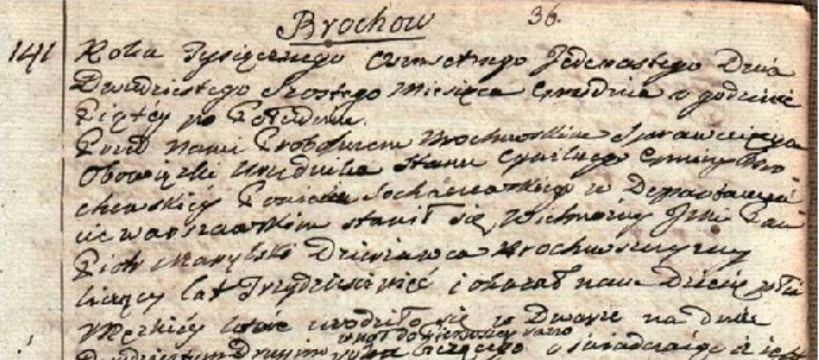 Brochow 36.
141 Roku Tysiącznego Osmsetnego Jedenastego Dnia
Dwudziestego Szostego Miesiąca Grudnia o godzinie
Piątey po Południu.
Przed Nami Proboszczem Brochowskim Sprawuiącym
Obowiązki Urzędnika Stanu Cywilnego Gminy Bro
chowskiey Powiatu Sochaczewskiego w Departamen
cie Warszawskim stawił się Wielmożny Jmć Pan
Piotr Dzierzawca Brochowszczyzny
liczący lat Trzydzieści i okazał nam Dziecię płci
Męzkiey ktore urodziło się w Dworze na dniu
Dwudziestym Drugim oświadczaiąc iż iest